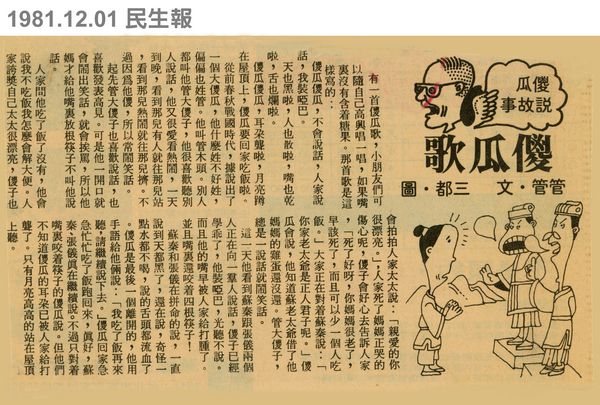 1981.12.01 民生報
傻瓜
說故事
傻瓜歌
管管・文 三都・圖
有一首傻瓜歌,小朋友們可
以隨自己高興唱一唱,如果嘴
裏沒有含着糖果。那首歌是這
樣寫的:
傻瓜傻瓜,不會說話,人家說
話,我裝啞巴。
天也黑啦,人也散啦,嘴也乾
啦,舌也爛啦。
傻瓜傻瓜,耳朵聾啦,月亮蹲
在屋頂上,傻瓜要回家吃飯啦。
從前春秋戰國時代,據說出了
一個大傻瓜,他什麼姓不好姓,
偏偏也姓管。他叫管木頭。別人
都叫他管大傻子,他很喜歡聽別
人說話,他又很愛看熱鬧,一天
到晚,看到那兒有人就往那兒站
,看到那兒熱鬧就往那兒擠,不
過因爲他傻,所以常鬧笑話。
起先管大傻子也喜歡說話,也
喜歡發表高見。可是他一開口就
會鬧出笑話,就會挨罵,所以他
媽才給他嘴裏放根筷子不叫他說
話。
人家問他吃了飯了沒有,他會
說我不吃飯我怎麼會解大便。人
家誇獎自己太太很漂亮,傻子也
會拍拍人家太太說:「親愛的你
很漂亮。」人家死了媽媽正哭的
傷心呢,傻子會好心去告訴人家
,「死了好呀,你媽媽很老了,
早該死了,而且可以少一個人吃
飯。」大家正在對着蘇秦說:「
你家老太爺是正人君子呢。」傻
瓜會說,他知道蘇老太爺借了他
媽媽的雞蛋還沒還。管大傻子,
總是一說話就鬧笑話。
這一天他看到蘇秦跟張儀兩個
人正在向一羣人說話,傻子已經
學乖了,他裝啞巴,光聽不說。
而且他的嘴早被人家給打腫了。
並且嘴裏還咬着四根筷子!
蘇秦和張儀在拼命的說,一直
說到天都黑了,還在說,奇怪一
點水都不喝,說的舌頭都流血了
。傻瓜是最後一個離開的,他用
手語給他倆說:「我吃了飯再來
聽,請繼續說下去。」傻瓜回家急
急忙忙吃了飯趕回來,眞好,蘇
秦、張儀眞在繼續說。不過只對着
嘴裏咬着筷子的傻瓜說。但他們
不知道傻瓜的耳朵已被人家給打
聾了。只有月亮高高的站在屋頂
上聽。